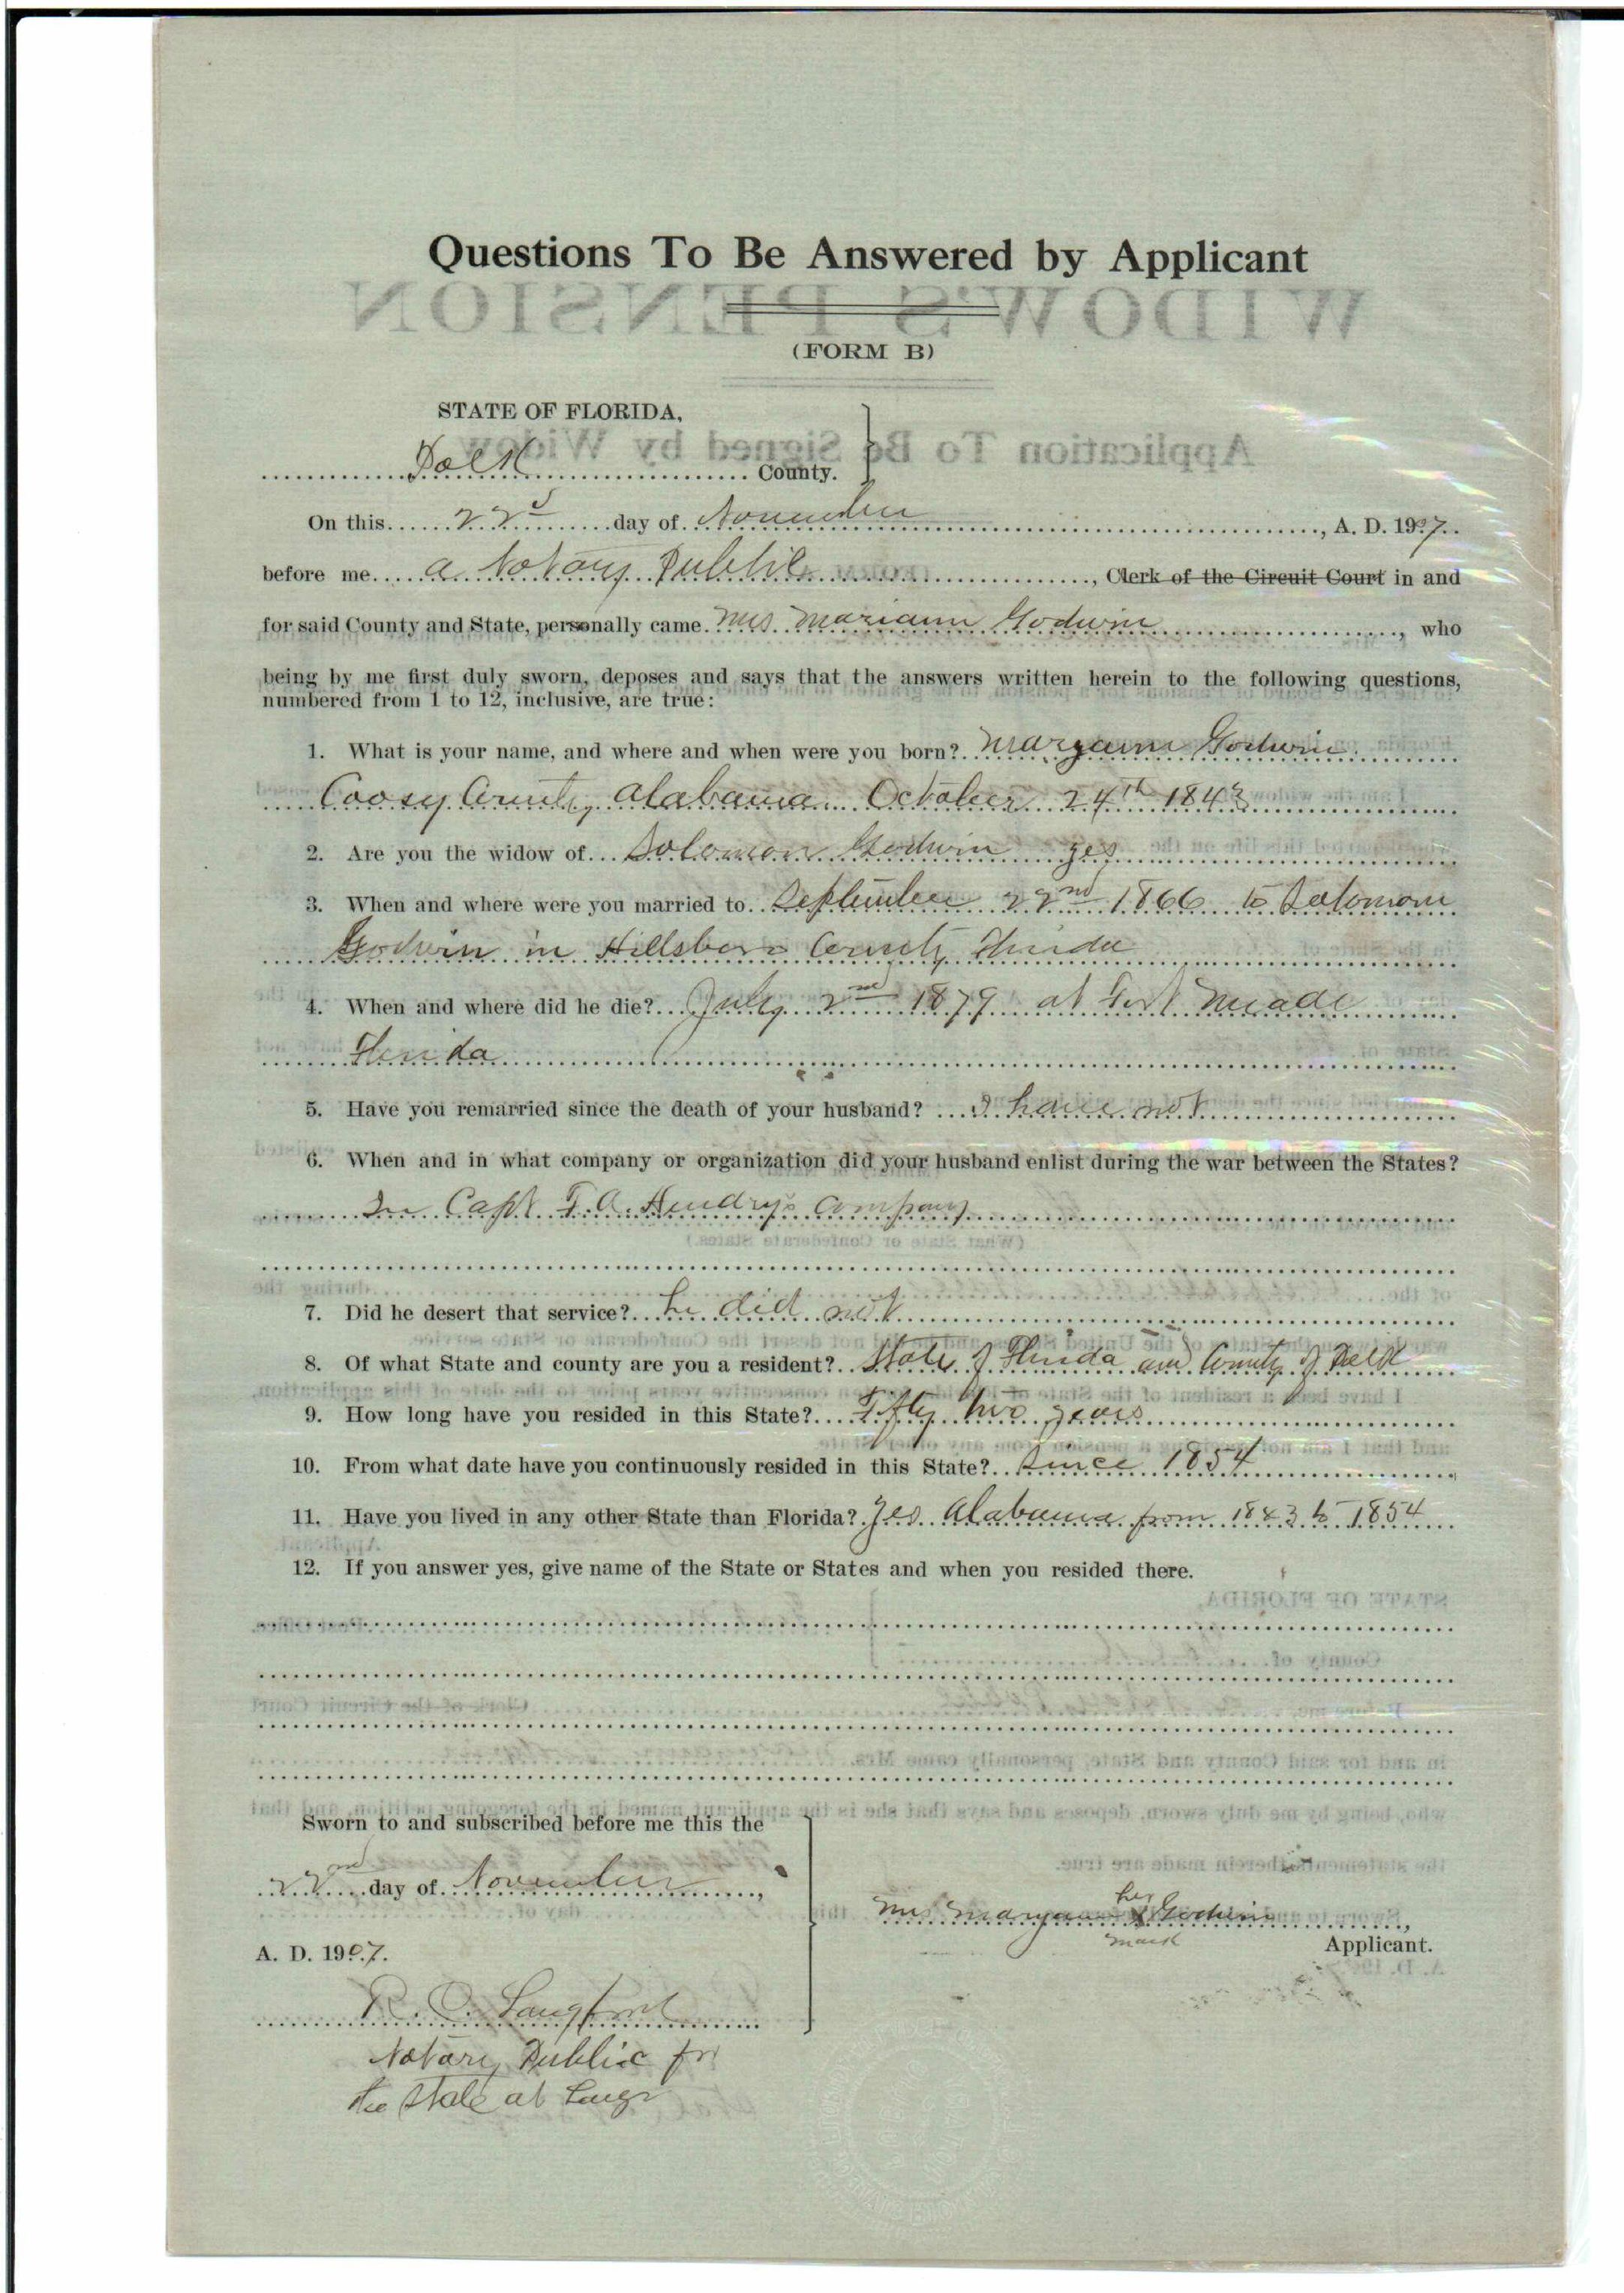 Questions To Be Answered by Applicant
WIDOW'S PENSION
(FORM B)
STATE OF FLORIDA,
Application To Be Signed by Widow
Polk County.
On this 22d day of November, A. D. 1907
before me a Notary Public, Clerk of the Circuit Court in and
for said County and State, personally came Mrs Mariann Godwin, who
being by me first duly sworn, deposes and says that the answers written herein to the following questions,
numbered from 1 to 12, inclusive, are true:
1. What is your name, and where and when were you born? Maryann Godwin
Coosy County Alabama October 24th 1843
2. Are you the widow of Solomon Godwin yes
3. When and where were you married to September 22nd 1866 to Solomon
Godwin in Hillsboro County Florida
4. When and where did he die? July 2nd 1879 at Fort Meade
Florida
5. Have you remarried since the death of your husband? I have not
6. When and in what company or organization did your husband enlist during the war between the States?
In Capt F. A. Hendry's Company
7. Did he desert that service? he did not
8. Of what State and county are you a resident? State of Florida and County of Polk
9. How long have you resided in this State? Fifty two years
10. From what date have you continuously resided in this State? Since 1854
11. Have you lived in any other State than Florida? Yes Alabama from 1843 to 1854
12. If you answer yes, give name of the State or States and when you resided there.
Sworn to and subscribed before me this the
22nd day of November,
A. D. 1907.
Mrs Maryann her X mark Godwin,
Applicant.
R. C. Langford
Notary Public for
the State at Large